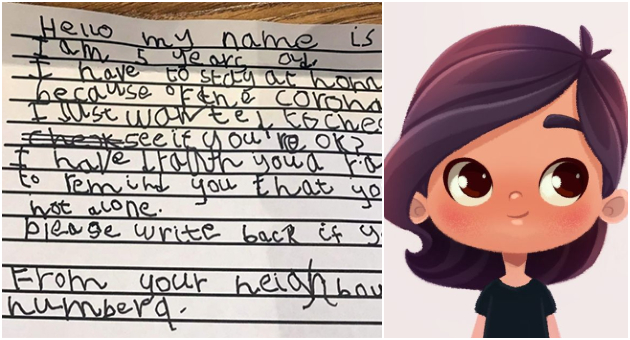 Hello my name is
I am 5 years old.
I have to stay at home
because of the corona
I Just wanted to chec
see if you're ok?
I have you a ra
to remind you that yo
not alone.
please write back if y
From your neighbou
number 9.